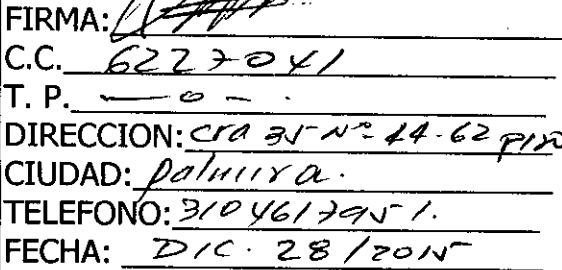 FIRMA:
C.C. 6227041
T. P. — 0 — .
DIRECCION: cra 35 Nº 44-62 piso
CIUDAD: Palmira.
TELEFONO: 3104617951.
FECHA: DIC. 28 / 2015